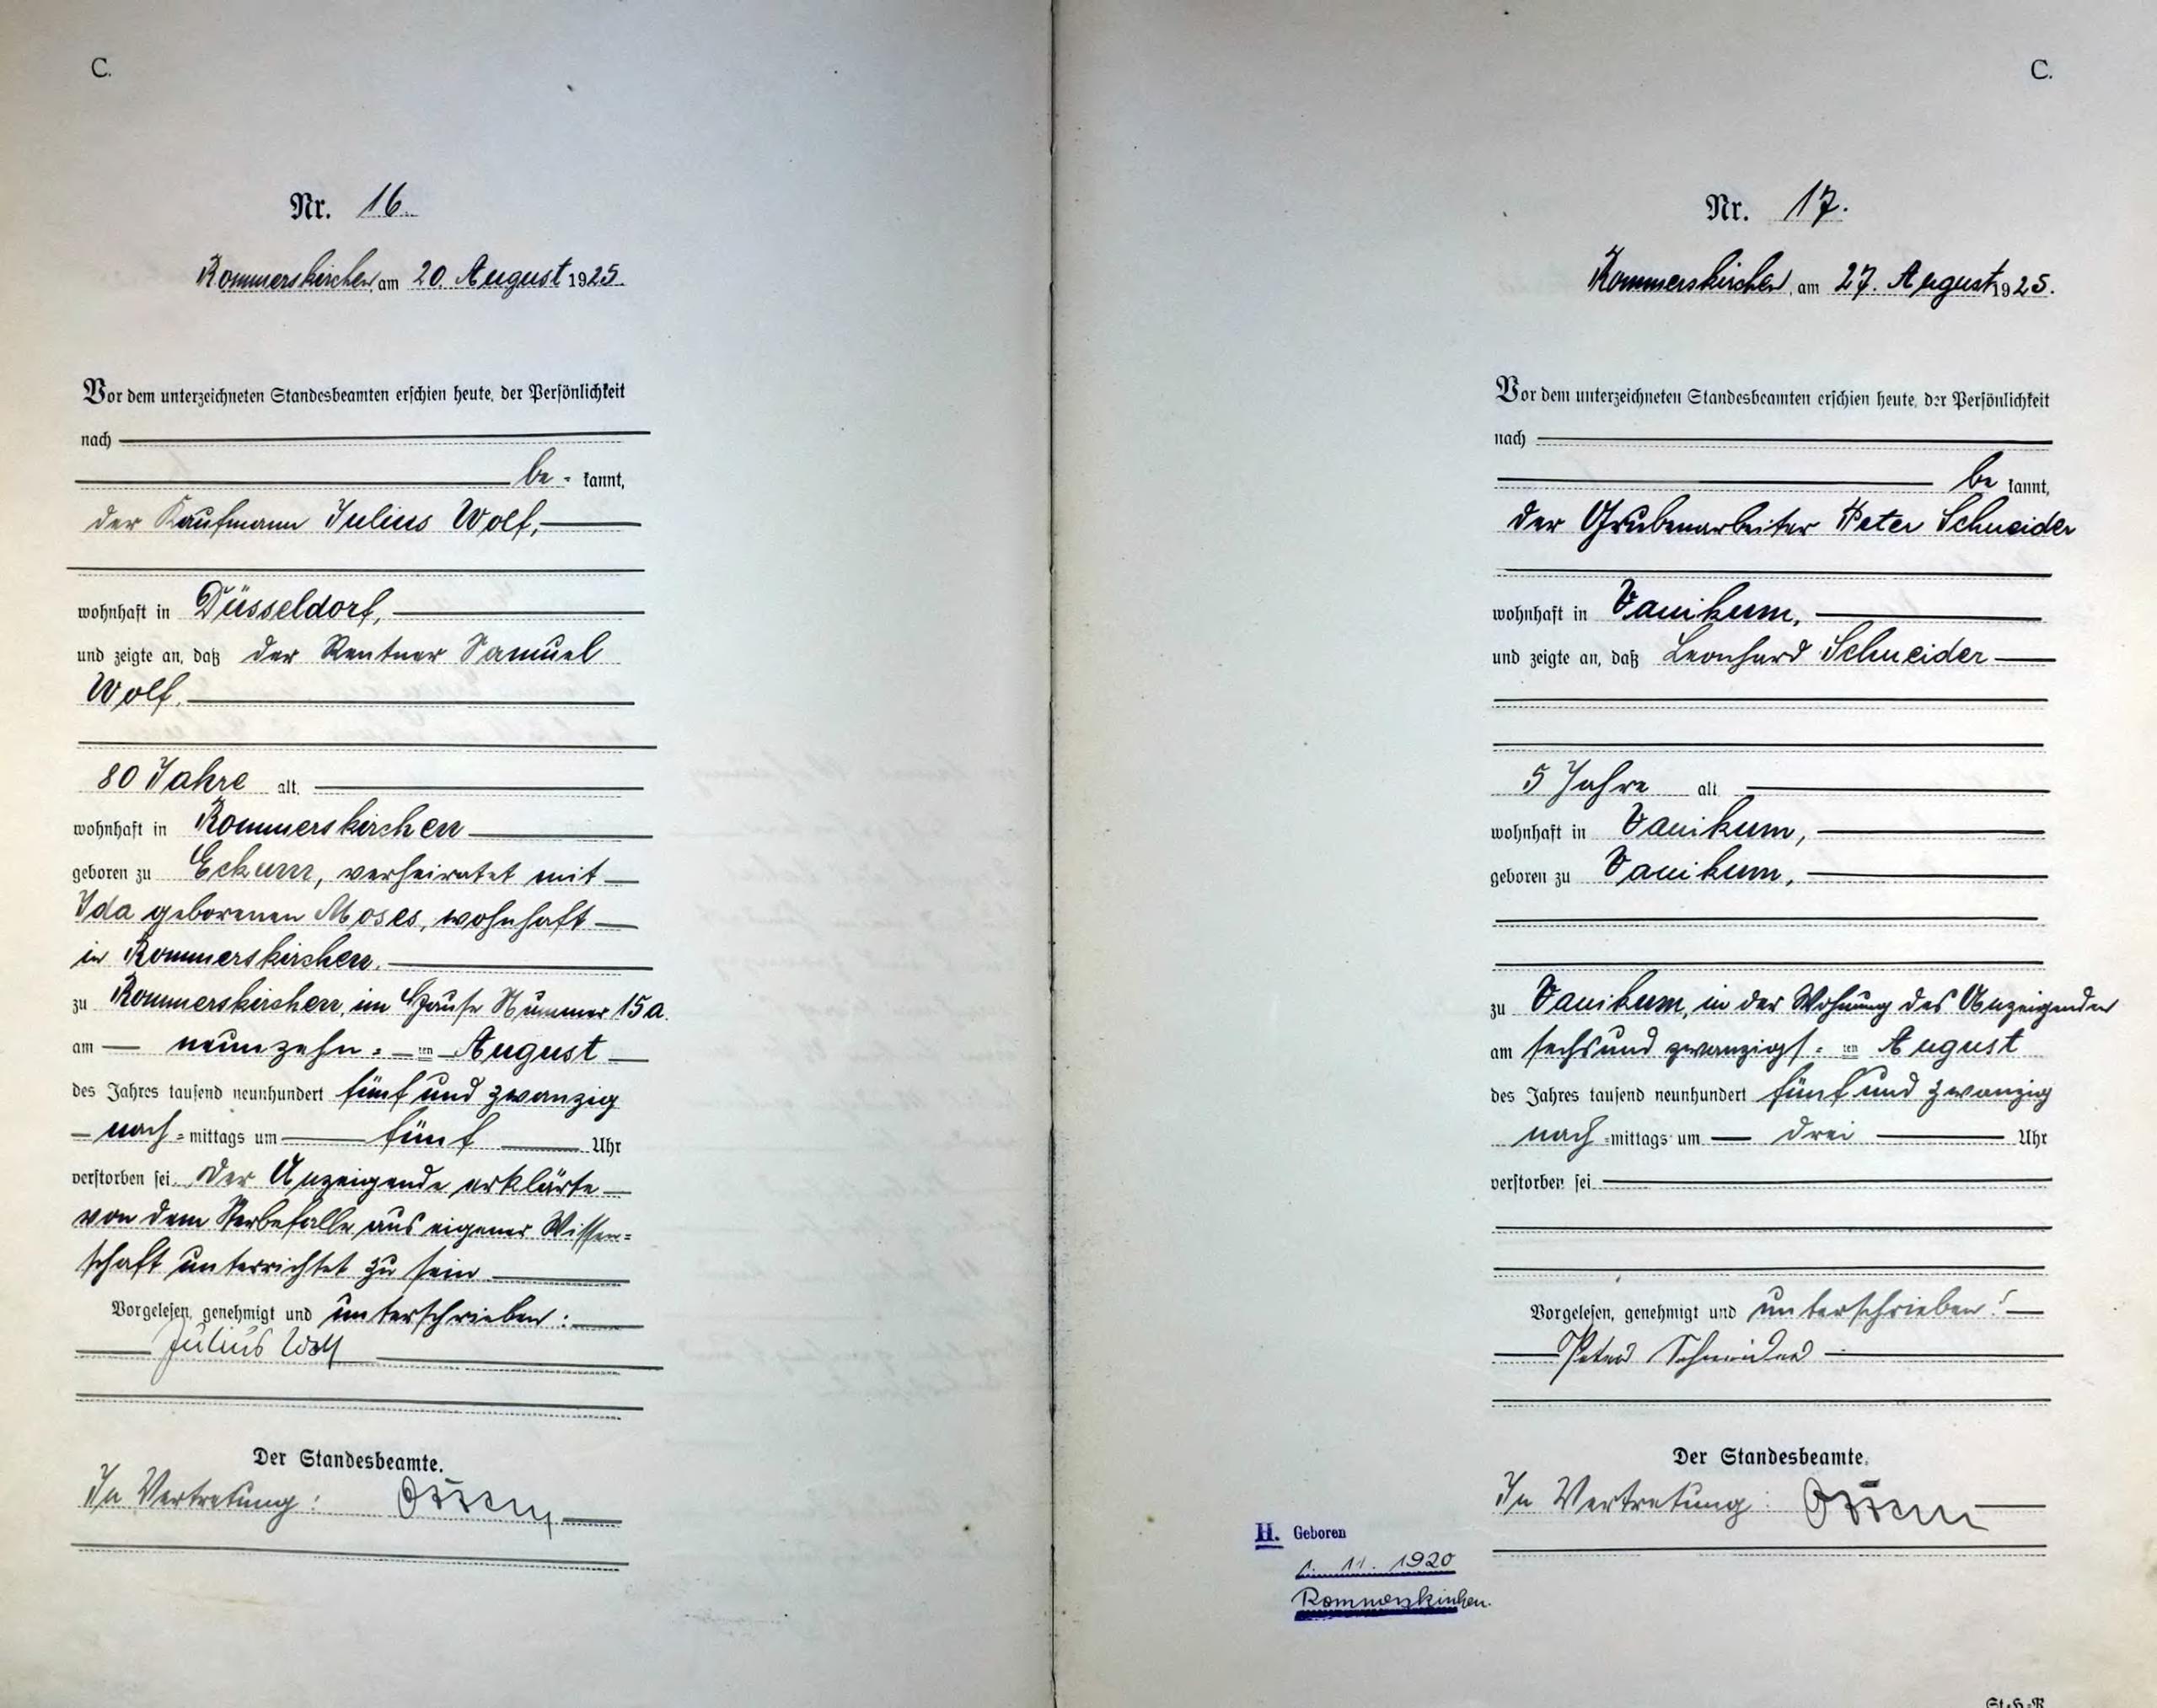 C.
Nr. 16.
Rommerskirchen, am 20. August 1925.
Vor dem unterzeichneten Standesbeamten erschien heute, der Persönlichkeit
nach
be = kannt,
der Kaufmann Julius Wolf,
wohnhaft in Düsseldorf,
und zeigte an, daß der Rentner Samuel
Wolf,
80 Jahre alt,
wohnhaft in Rommerskirchen
geboren zu Eckum, verheiratet mit
Ida geborenen Moses, wohnhaft
in Rommerskirchen,
zu Rommerskirchen, im Hause Nummer 15a.
am neunzehn = ten August
des Jahres tausend neunhundert fünf und zwanzig
nach = mittags um fünf Uhr
verstorben sei. Der Anzeigende erklärte
von dem Sterbefalle aus eigener Wissen=
schaft unterrichtet zu sein
Vorgelesen, genehmigt und unterschrieben:
Julius Wolf
Der Standesbeamte.
In Vertretung:
C.
Nr. 17.
Rommerskirchen, am 27. August 1925.
Vor dem unterzeichneten Standesbeamten erschien heute, der Persönlichkeit
nach
be kannt,
der Grubenarbeiter Peter Schneider
wohnhaft in Vanikum,
und zeigte an, daß Leonhard Schneider
5 Jahre alt
wohnhaft in Vanikum,
geboren zu Vanikum,
zu Vanikum, in der Wohnung des Anzeigenden
am sechsund zwanzigs = ten August
des Jahres tausend neunhundert fünf und zwanzig
nach = mittags um drei Uhr
verstorben sei
Vorgelesen, genehmigt und unterschrieben!
Peter Schneider
Der Standesbeamte.
In Vertretung:
H. Geboren
1. 11. 1920
Rommerskirchen.